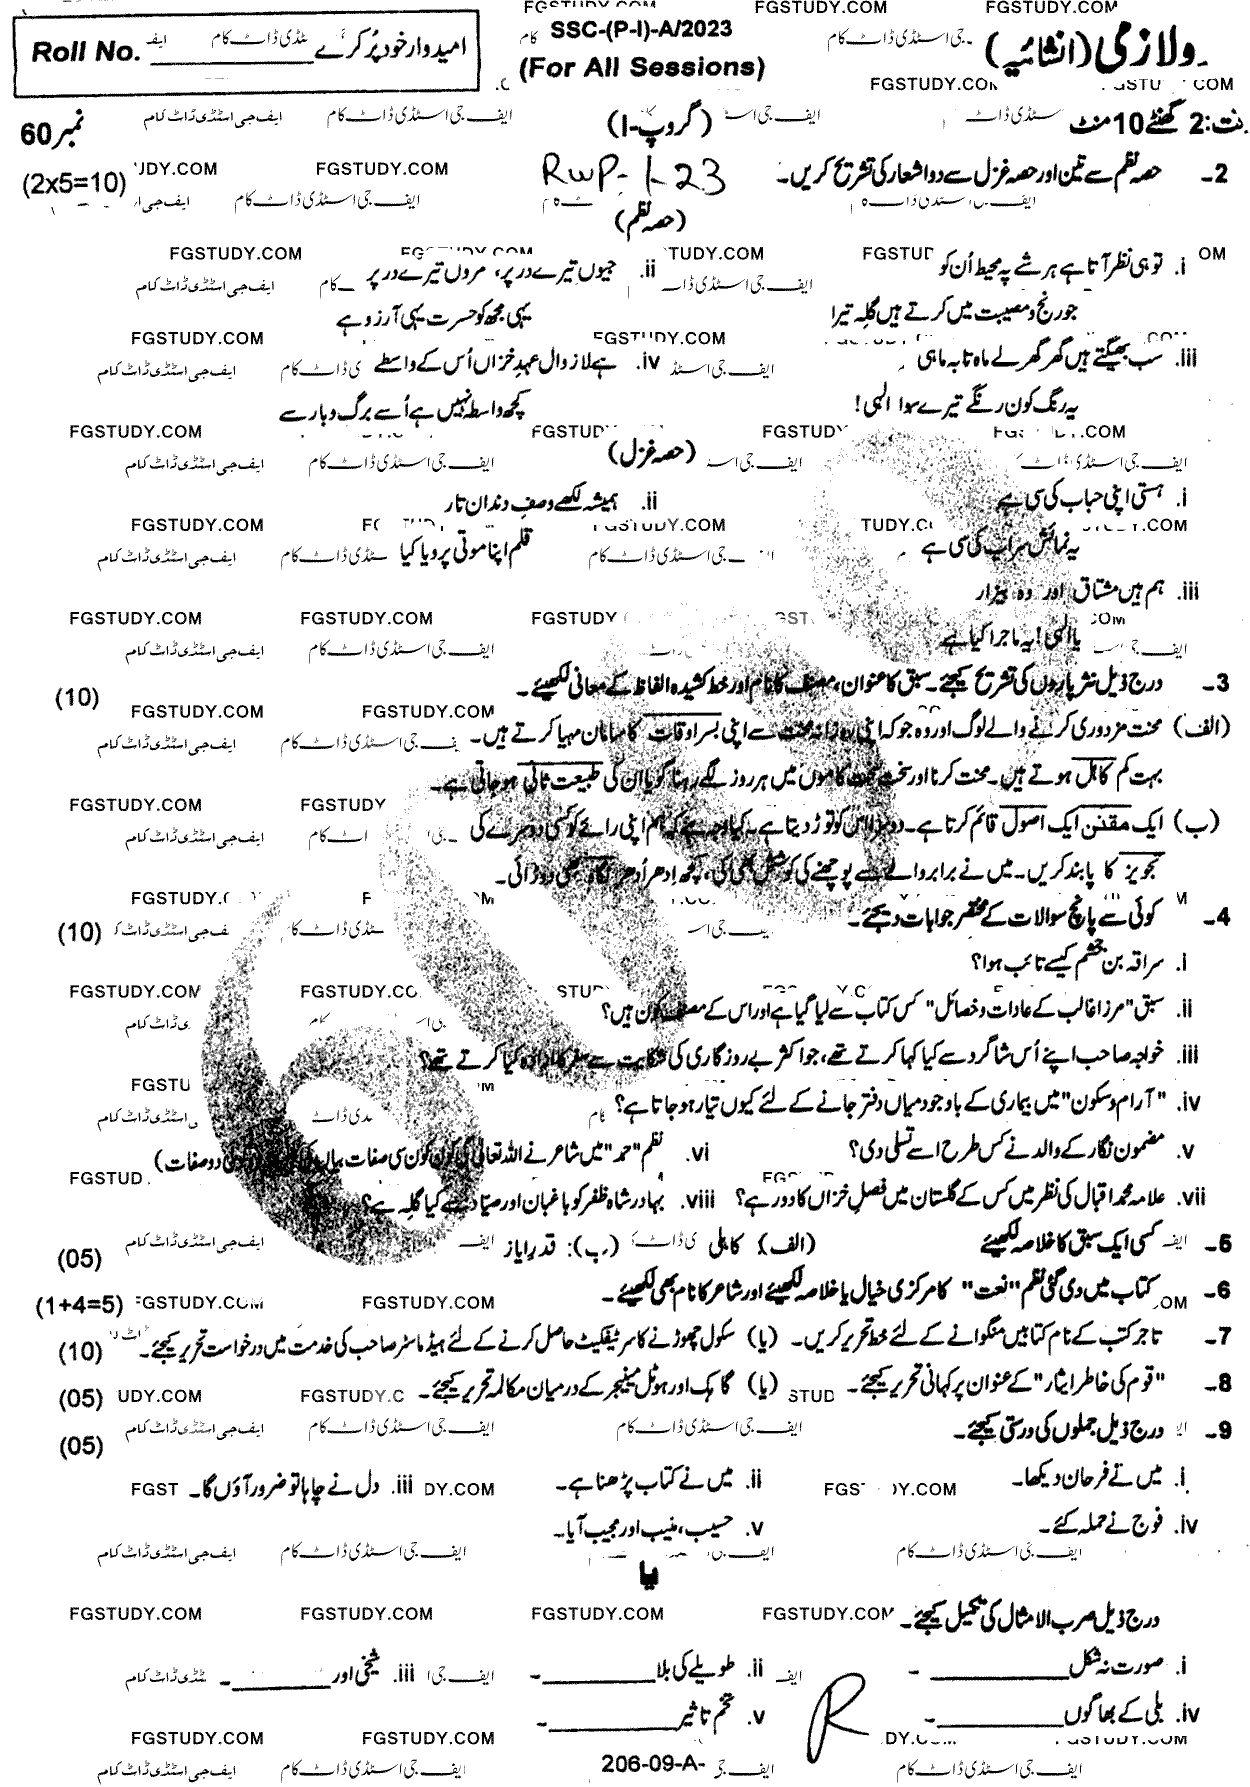 Roll No. ________ امیدوار خود پُر کرے
SSC-(P-I)-A/2023
(For All Sessions)
ولازمی (انشائیہ)
2 گھنٹے 10 منٹ
(گروپ-I)
نمبر 60
RWP-1-23
2- حصہ نظم سے تین اور حصہ غزل سے دو اشعار کی تشریح کریں۔ (2x5=10)
(حصہ نظم)
i. تو ہی نظر آتا ہے ہر شے پہ محیط اُن کو
جو رنج و مصیبت میں کرتے ہیں گلہ تیرا
ii. جیوں تیرے در پر، مروں تیرے در پر
یہی مجھ کو حسرت یہی آرزو ہے
iii. سب بھیگتے ہیں گھر گھر لے ماہ تا بہ ماہی
یہ رنگ کون رنگے تیرے سوا الٰہی!
iv. ہے لازوال عہدِ خزاں اُس کے واسطے
کچھ واسطہ نہیں ہے اُسے برگ و بار سے
(حصہ غزل)
i. ہستی اپنی حباب کی سی ہے
یہ نمائش سراب کی سی ہے
ii. ہمیشہ لکھے وصفِ دندانِ یار
قلم اپنا موتی پرویا کیا
iii. ہم ہیں مشتاق اور وہ بیزار
یا الٰہی! یہ ماجرا کیا ہے
3- درج ذیل نثر پاروں کی تشریح کیجئے۔ سبق کا عنوان، مصنف کا نام اور خط کشیدہ الفاظ کے معانی لکھیئے۔ (10)
(الف) محنت مزدوری کرنے والے لوگ اور وہ جو کہ اپنی روزانہ محنت سے اپنی بسر اوقات کا سامان مہیا کرتے ہیں۔
بہت کم کاہل ہوتے ہیں۔ محنت کرنا اور سخت سخت کاموں میں ہر روز لگے رہنا گویا ان کی طبیعت ثانی ہو جاتی ہے۔
(ب) ایک مقنن ایک اصول قائم کرتا ہے۔ دوسرا اس کو توڑ دیتا ہے۔ کیا وجہ ہے کہ ہم اپنی رائے کو کسی دوسرے کی
تجویز کا پابند کریں۔ میں نے برابر والے سے پوچھنے کی کوشش بھی کی، کچھ اِدھر اُدھر نگاہ بھی دوڑائی۔
4- کوئی سے پانچ سوالات کے مختصر جوابات دیجئے۔ (10)
i. سراقہ بن جعشم کیسے تائب ہوا؟
ii. سبق "مرزا غالب کے عادات و خصائل" کس کتاب سے لیا گیا ہے اور اس کے مصنف کون ہیں؟
iii. خواجہ صاحب اپنے اُس شاگرد سے کیا کہا کرتے تھے، جو اکثر بے روزگاری کی شکایت سے سفر کا ارادہ کیا کرتے تھے؟
iv. "آرام و سکون" میں بیماری کے باوجود میاں دفتر جانے کے لئے کیوں تیار ہو جاتا ہے؟
v. مضمون نگار کے والد نے کس طرح اسے تسلی دی؟
vi. نظم "حمد" میں شاعر نے اللہ تعالیٰ کی کون کون سی صفات بیان کی دو صفات)
vii. علامہ محمد اقبال کی نظر میں کس کے گلستان میں فصلِ خزاں کا دور ہے؟
viii. بہادر شاہ ظفر کو باغبان اور صیاد سے کیا گلہ ہے؟
5- کسی ایک سبق کا خلاصہ لکھیئے (الف) کاہلی (ب): قدرِ ایاز (05)
6- کتاب میں دی گئی نظم "نعت" کا مرکزی خیال یا خلاصہ لکھیئے اور شاعر کا نام بھی لکھیئے۔ (1+4=5)
7- تاجر کتب کے نام کتابیں منگوانے کے لئے خط تحریر کریں۔ (یا) سکول چھوڑنے کا سرٹیفکیٹ حاصل کرنے کے لئے ہیڈ ماسٹر صاحب کی خدمت میں درخواست تحریر کیجئے۔ (10)
8- "قوم کی خاطر ایثار" کے عنوان پر کہانی تحریر کیجئے۔ (یا) گاہک اور ہوٹل منیجر کے درمیان مکالمہ تحریر کیجئے۔ (05)
9- درج ذیل جملوں کی درستی کیجئے۔ (05)
i. میں نے فرحان دیکھا۔
ii. میں نے کتاب پڑھنا ہے۔
iii. دل نے چاہا تو ضرور آؤں گا۔
iv. فوج نے حملہ کئے۔
v. حسیب، منیب اور مجیب آیا۔
یا
درج ذیل ضرب الامثال کی تکمیل کیجئے۔
i. صورت نہ شکل ________۔
ii. طویلے کی بلا ________۔
iii. شیخی اور ________۔
iv. بلی کے بھاگوں ________۔
v. تخم تاثیر ________۔
R
206-09-A-
FGSTUDY.COM
ایف جی اسٹڈی ڈاٹ کام